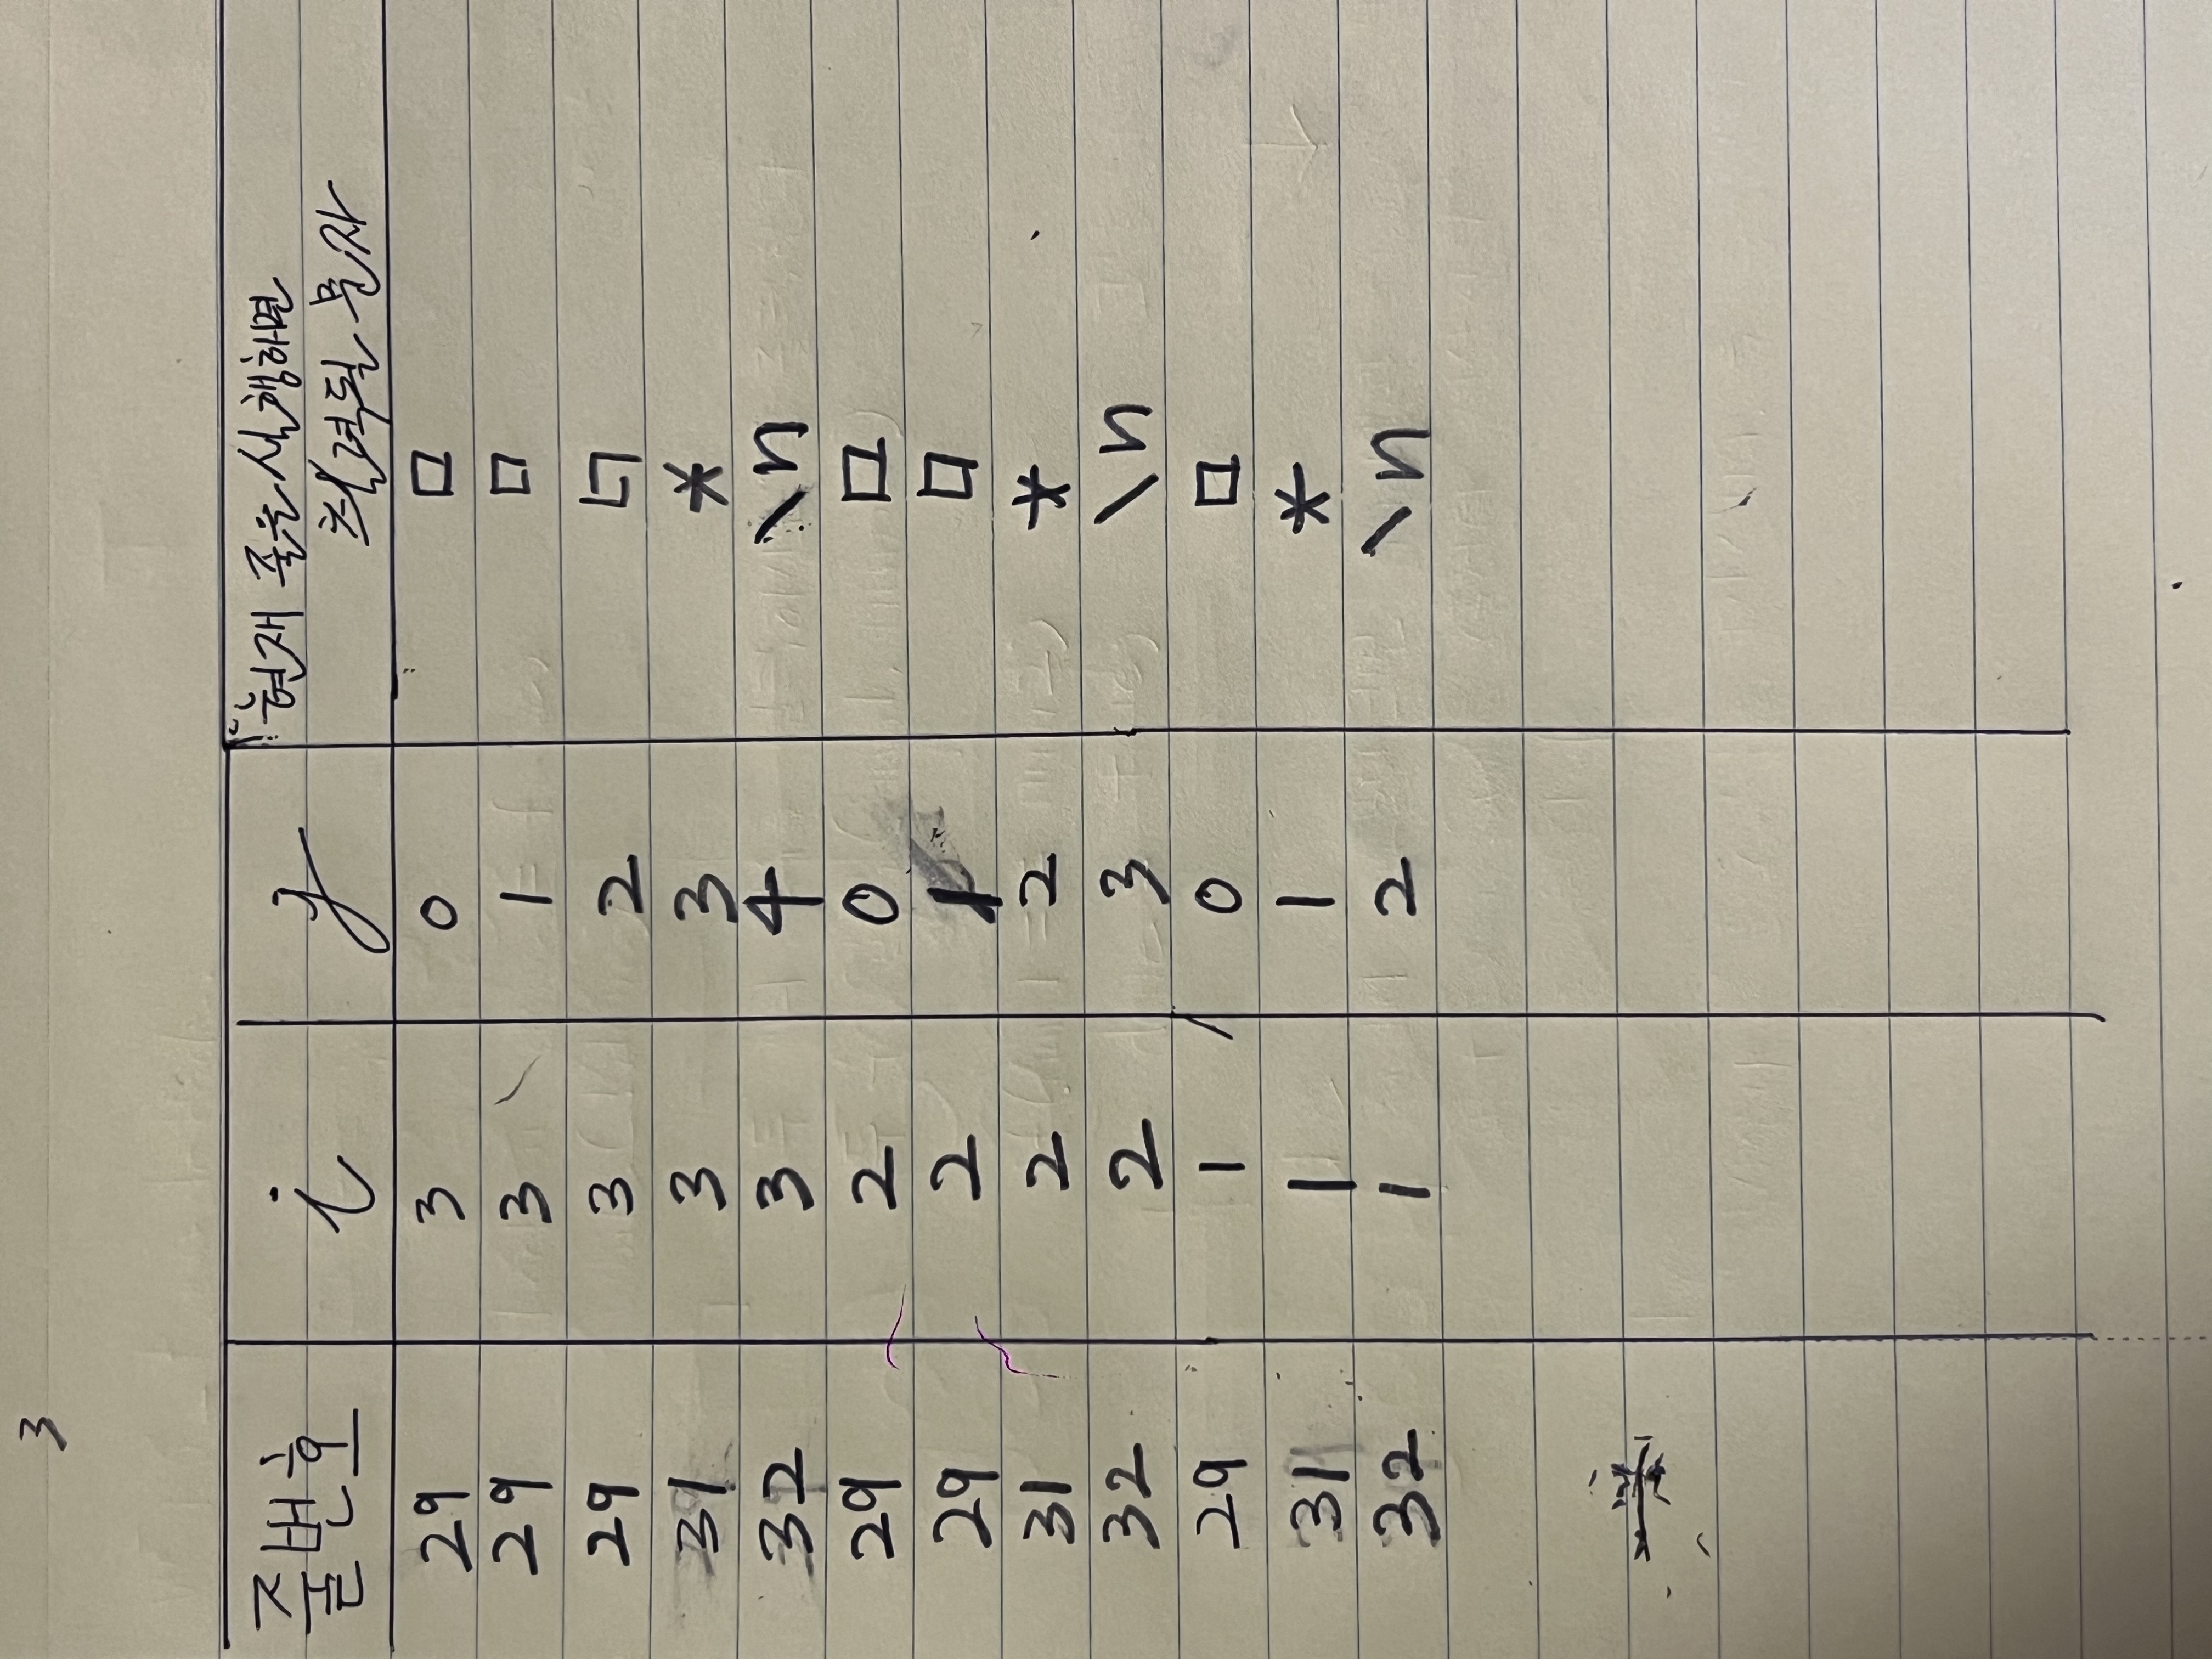 3
줄번호 i j 현재 줄을 실행하면
출력될 문자
29 3 0 □
29 3 1 □
29 3 2 □
31 3 3 *
32 3 4 \n
29 2 0 □
29 2 1 □
31 2 2 *
32 2 3 \n
29 1 0 □
31 1 1 *
32 1 2 \n